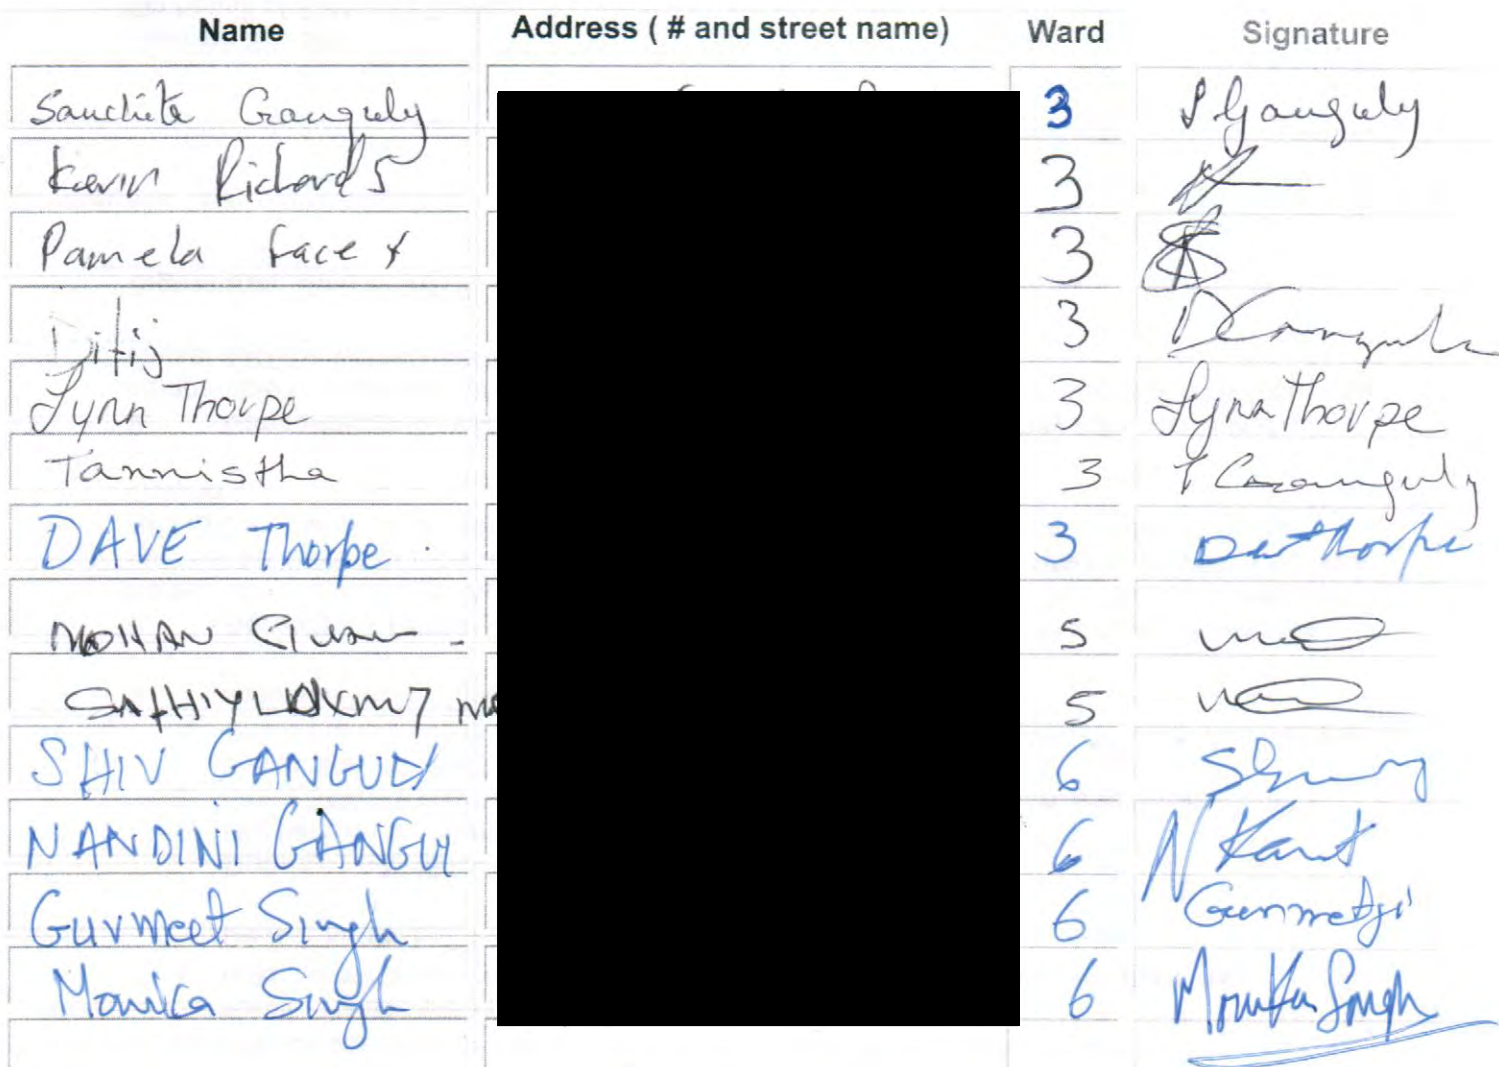 Name Address ( # and street name) Ward Signature
Sanchita Ganguly 3 S Ganguly
Kevin Richards 3
Pamela Facey 3
Ditij 3 D Ganguly
Lynn Thorpe 3 Lynn Thorpe
Tannistha 3 T Ganguly
DAVE Thorpe 3 Dave Thorpe
MOHAN 5
5
SHIV GANGULY 6
NANDINI GANGULY 6 N Kant
Gurmeet Singh 6
Monika Singh 6 Monika Singh